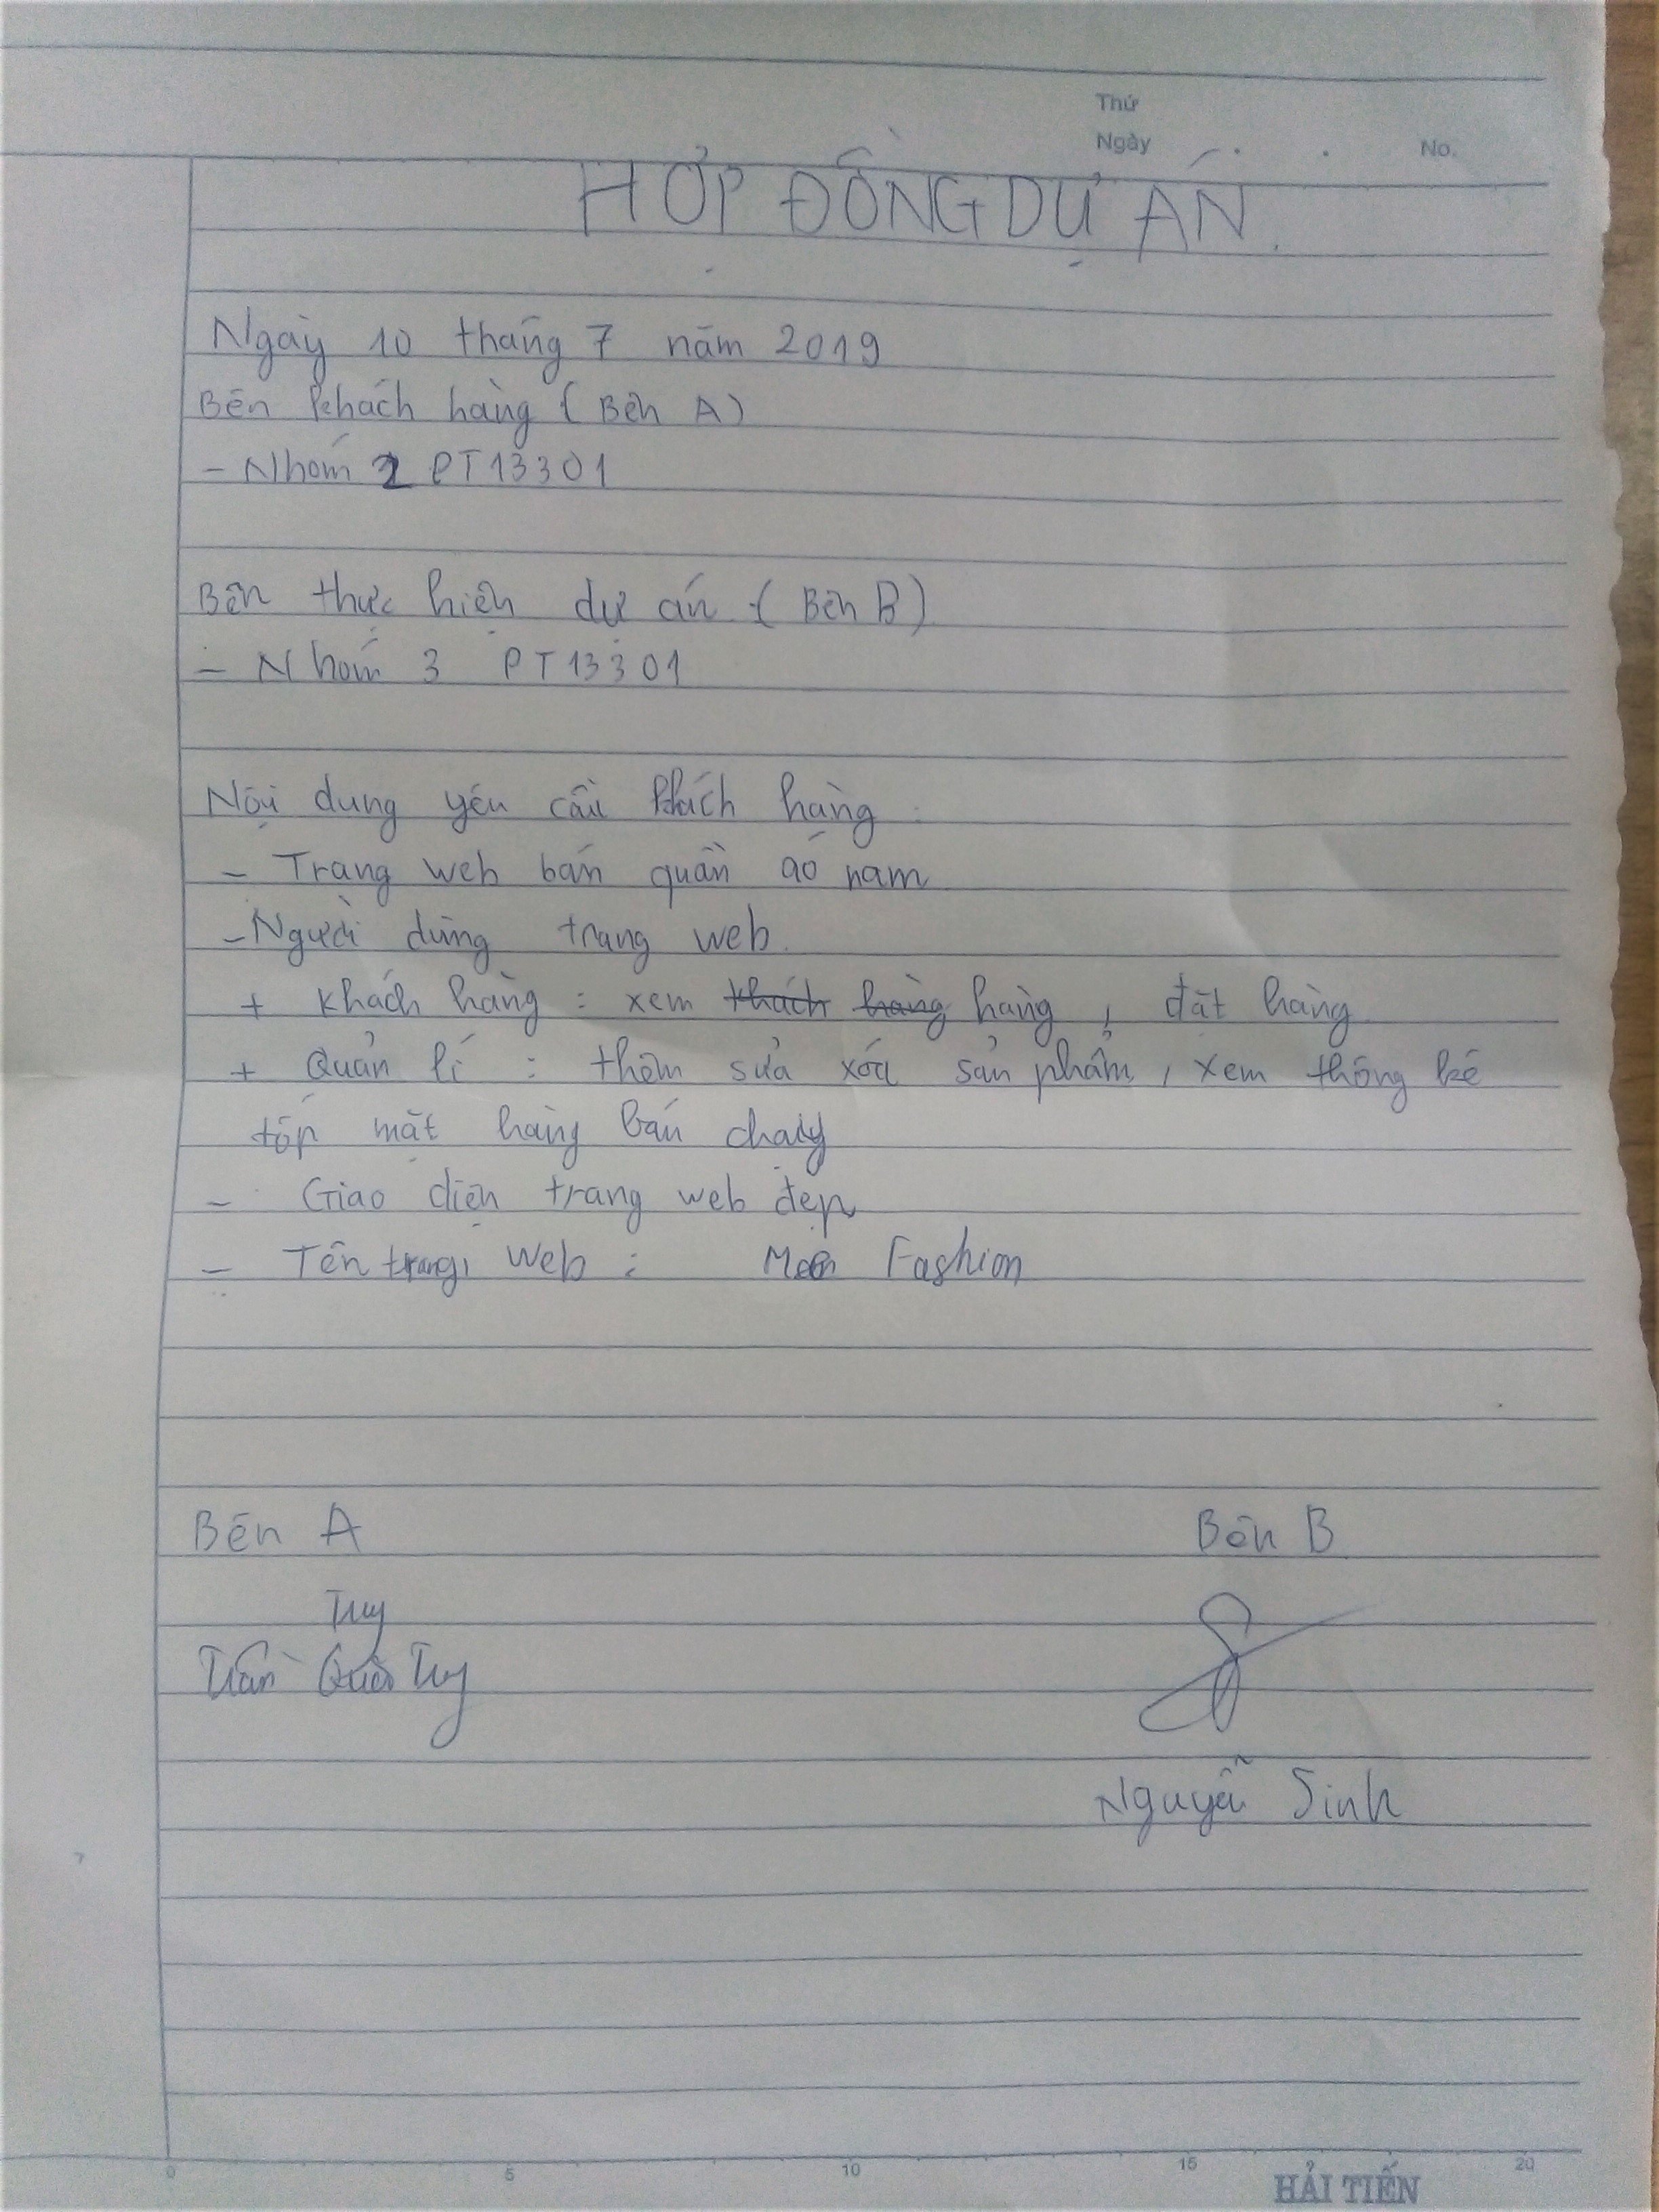 Thứ
Ngày No.
HỢP ĐỒNG DỰ ÁN.
Ngày 10 tháng 7 năm 2019
Bên khách hàng (Bên A)
- Nhóm 2 PT13301
Bên thực hiện dự án (Bên B)
- Nhóm 3 PT13301
Nội dung yêu cầu khách hàng :
- Trang web bán quần áo nam
- Người dùng trang web.
+ Khách hàng : xem khách hàng hàng, đặt hàng
+ Quản lí : thêm sửa xóa sản phẩm, xem thống kê
tốp mặt hàng bán chạy
- Giao diện trang web đẹp
- Tên trang web : Men Fashion
Bên A Bên B
Tuy
Trần Tuy
Nguyễn Sinh
0 5 10 15 20
HẢI TIẾN